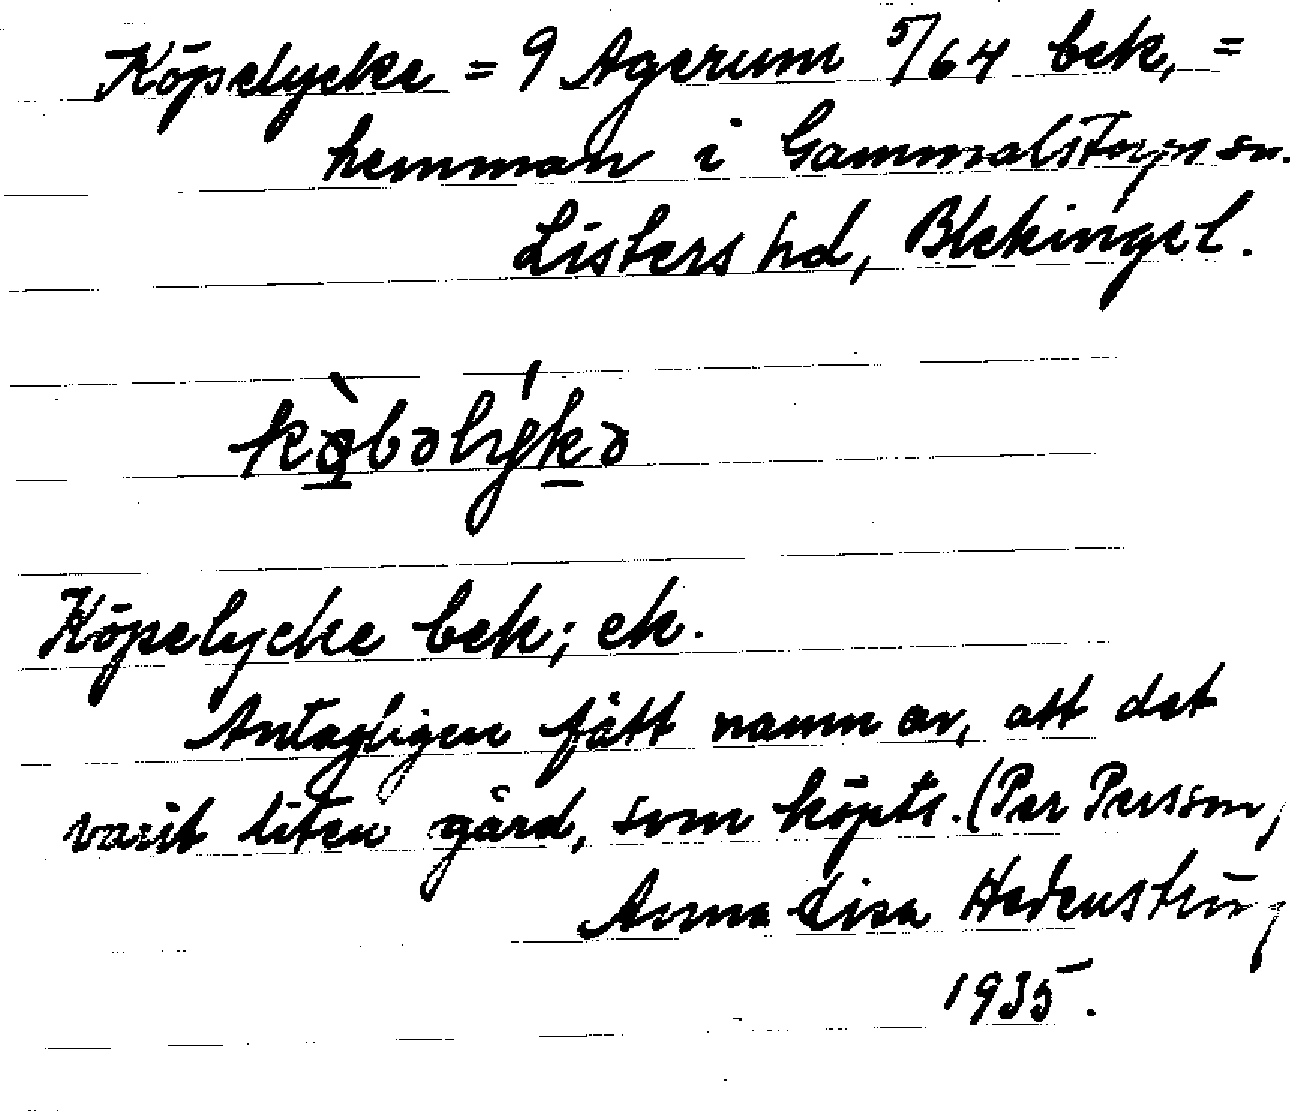 Köpelycke = 9 Agerum 5/64 bek, =
hemman i Gammalstorps sn.
Listers hd, Blekinge l.
kø̀bəlýkə
Köpelycke bek; ek.
Antagligen fått namn av, att det
varit liten gård, som köpts. (Per Persson,
Anna Lisa Hedenström,
1935.